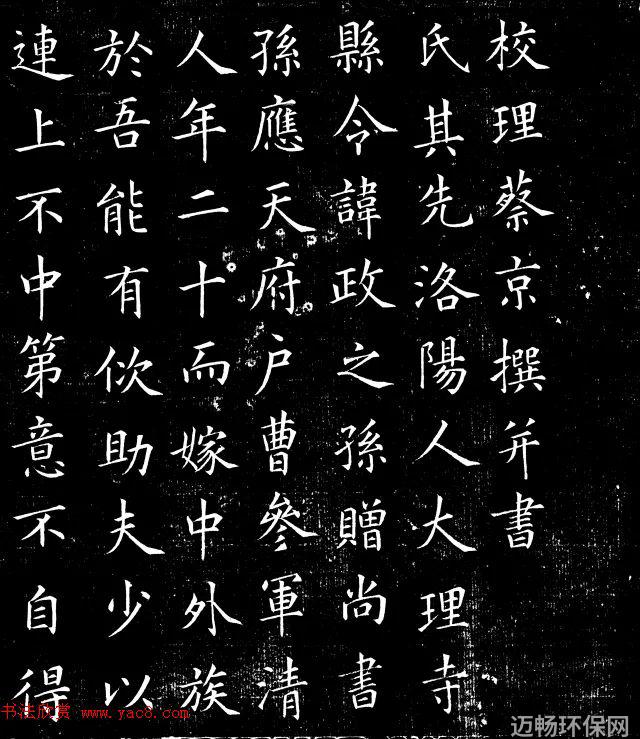 校理蔡京撰并書
氏其先洛陽人大理寺
縣令諱政之孫贈尚書
孫應天府户曹參軍清
人年二十而嫁中外族
於吾能有佽助夫少以
連上不中第意不自得
书法欣赏 www.yac8.com
迈畅环保网